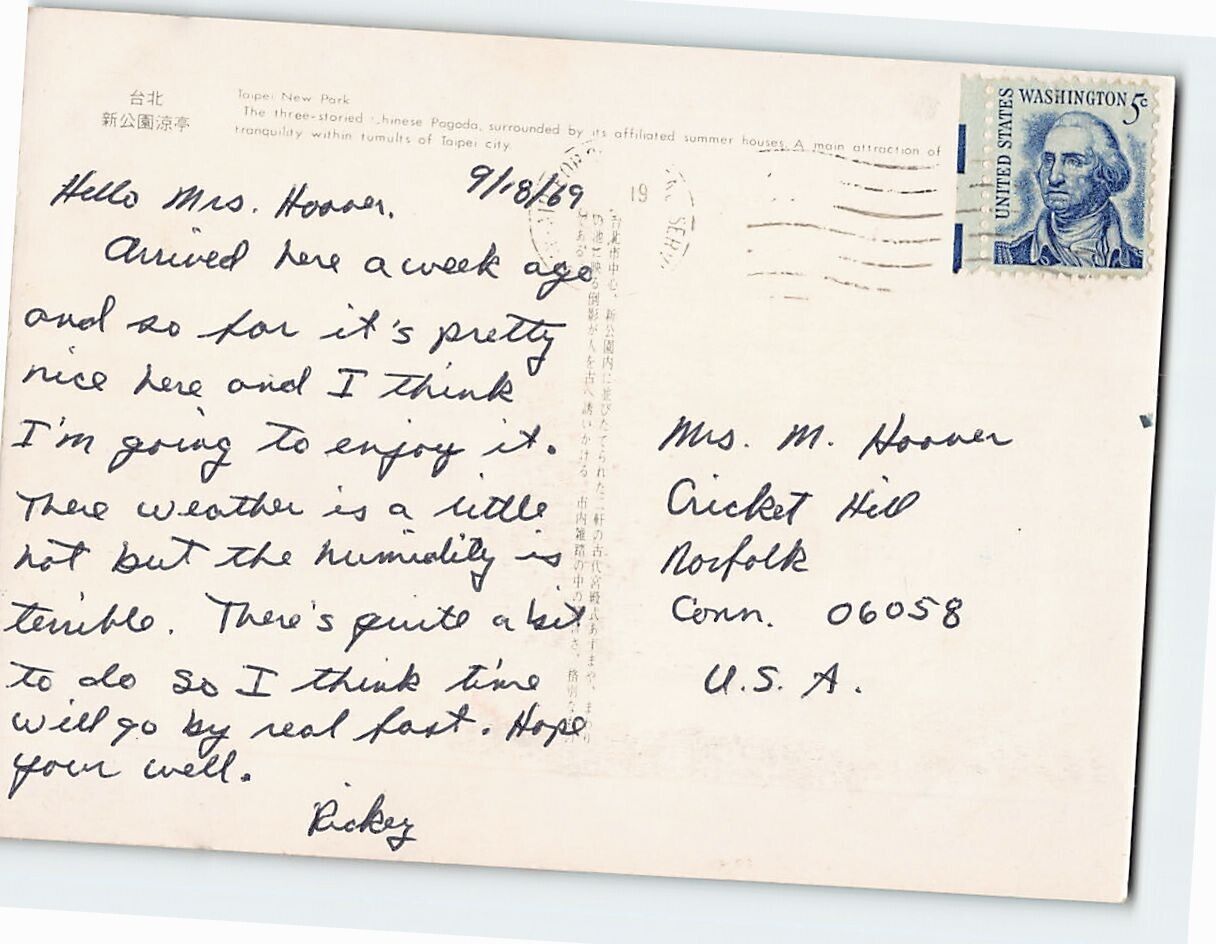 台北
新公園涼亭
Taipei New Park
The three-storied Chinese Pagoda, surrounded by its affiliated summer houses. A main attraction of
tranquility within tumults of Taipei city.
9/18/69
Hello Mrs. Hoover.
Arrived here a week ago
and so far it's pretty
nice here and I think
I'm going to enjoy it.
There weather is a little
hot but the humidity is
terrible. There's quite a bit
to do so I think time
will go by real fast. Hope
your well.
Rickey
台北市中心、新公園内に並びたてられた二軒の古代宮殿式あずまや、まわり
の池に映る倒影が人を古へ誘いかける。市内雑踏の中の
である。
19
SERV
UNITED STATES
WASHINGTON 5c
Mrs. M. Hoover
Cricket Hill
Norfolk
Conn. 06058
U.S.A.